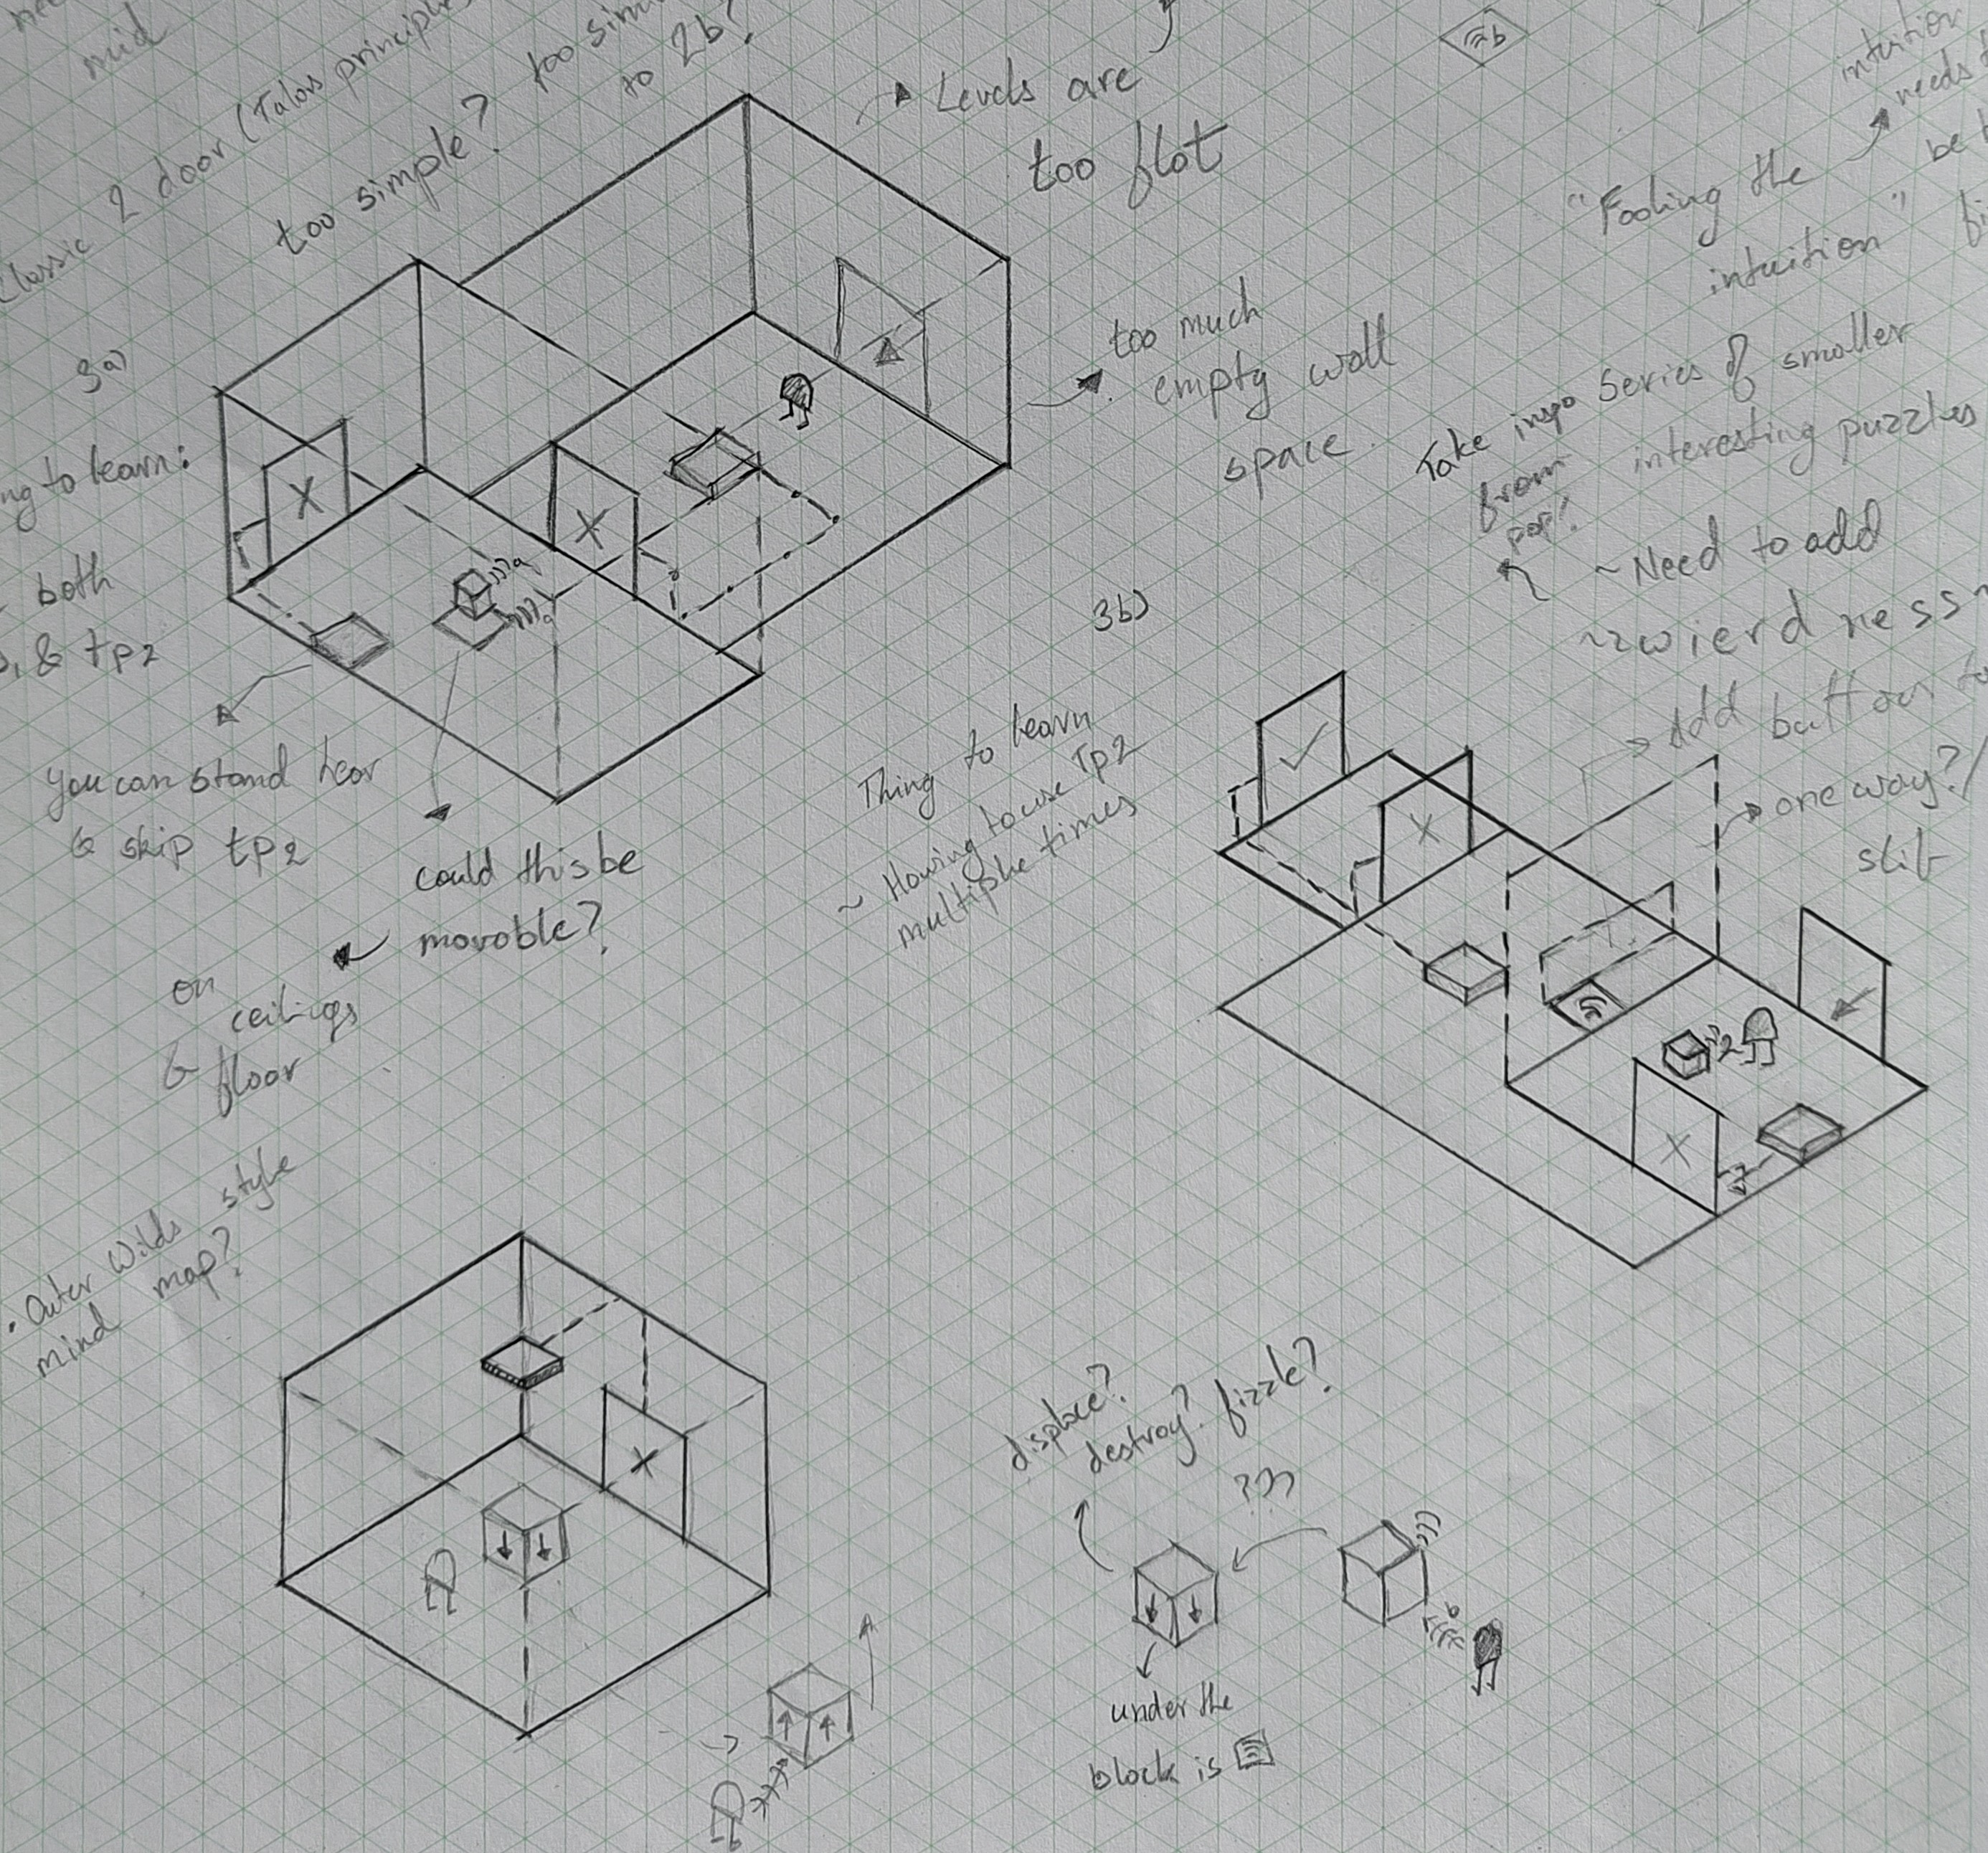 mid
Classic 2 door (Talos principle
too simple? too sim
to 2b?
Levels are
too flat
b
intuition
needs
be
"Fooling the
intuition"
3a)
ng to learn:
both
& tp2
too much
empty wall
space.
Take inspo
from
pop!
Series of smaller
interesting puzzles
~ Need to add
~~wierdness~
Add button
one way?/
slit
X
X
you can stand hear
& skip tp2
could this be
movable?
on
ceilings
& floor
3b)
Thing to learn
~ Having to use Tp2
multiple times
X
2
X
• Outer Wilds style
mind map?
X
displace?
destroy? fizzle?
???
b
under the
block is